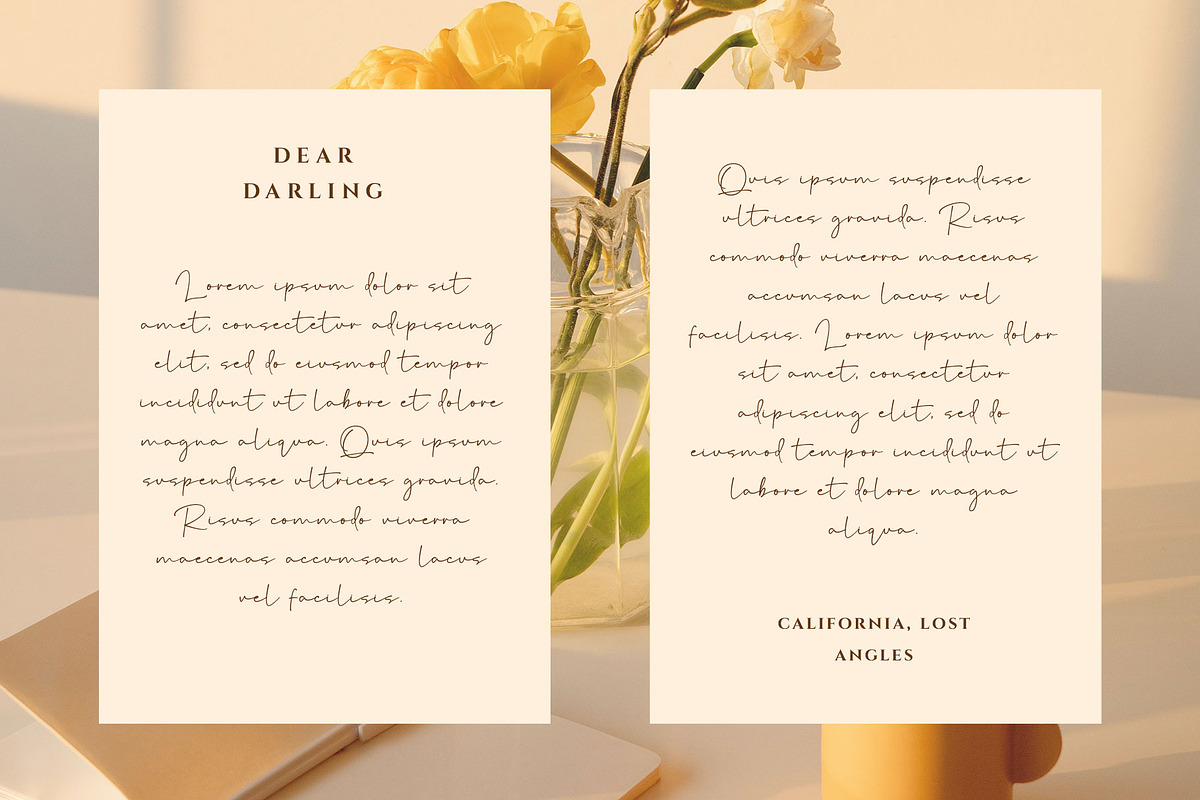 DEAR
DARLING
Lorem ipsum dolor sit
amet, consectetur adipiscing
elit, sed do eiusmod tempor
incididunt ut labore et dolore
magna aliqua. Quis ipsum
suspendisse ultrices gravida.
Risus commodo viverra
maecenas accumsan lacus
vel facilisis.
Quis ipsum suspendisse
ultrices gravida. Risus
commodo viverra maecenas
accumsan lacus vel
facilisis. Lorem ipsum dolor
sit amet, consectetur
adipiscing elit, sed do
eiusmod tempor incididunt ut
labore et dolore magna
aliqua.
CALIFORNIA, LOST
ANGLES